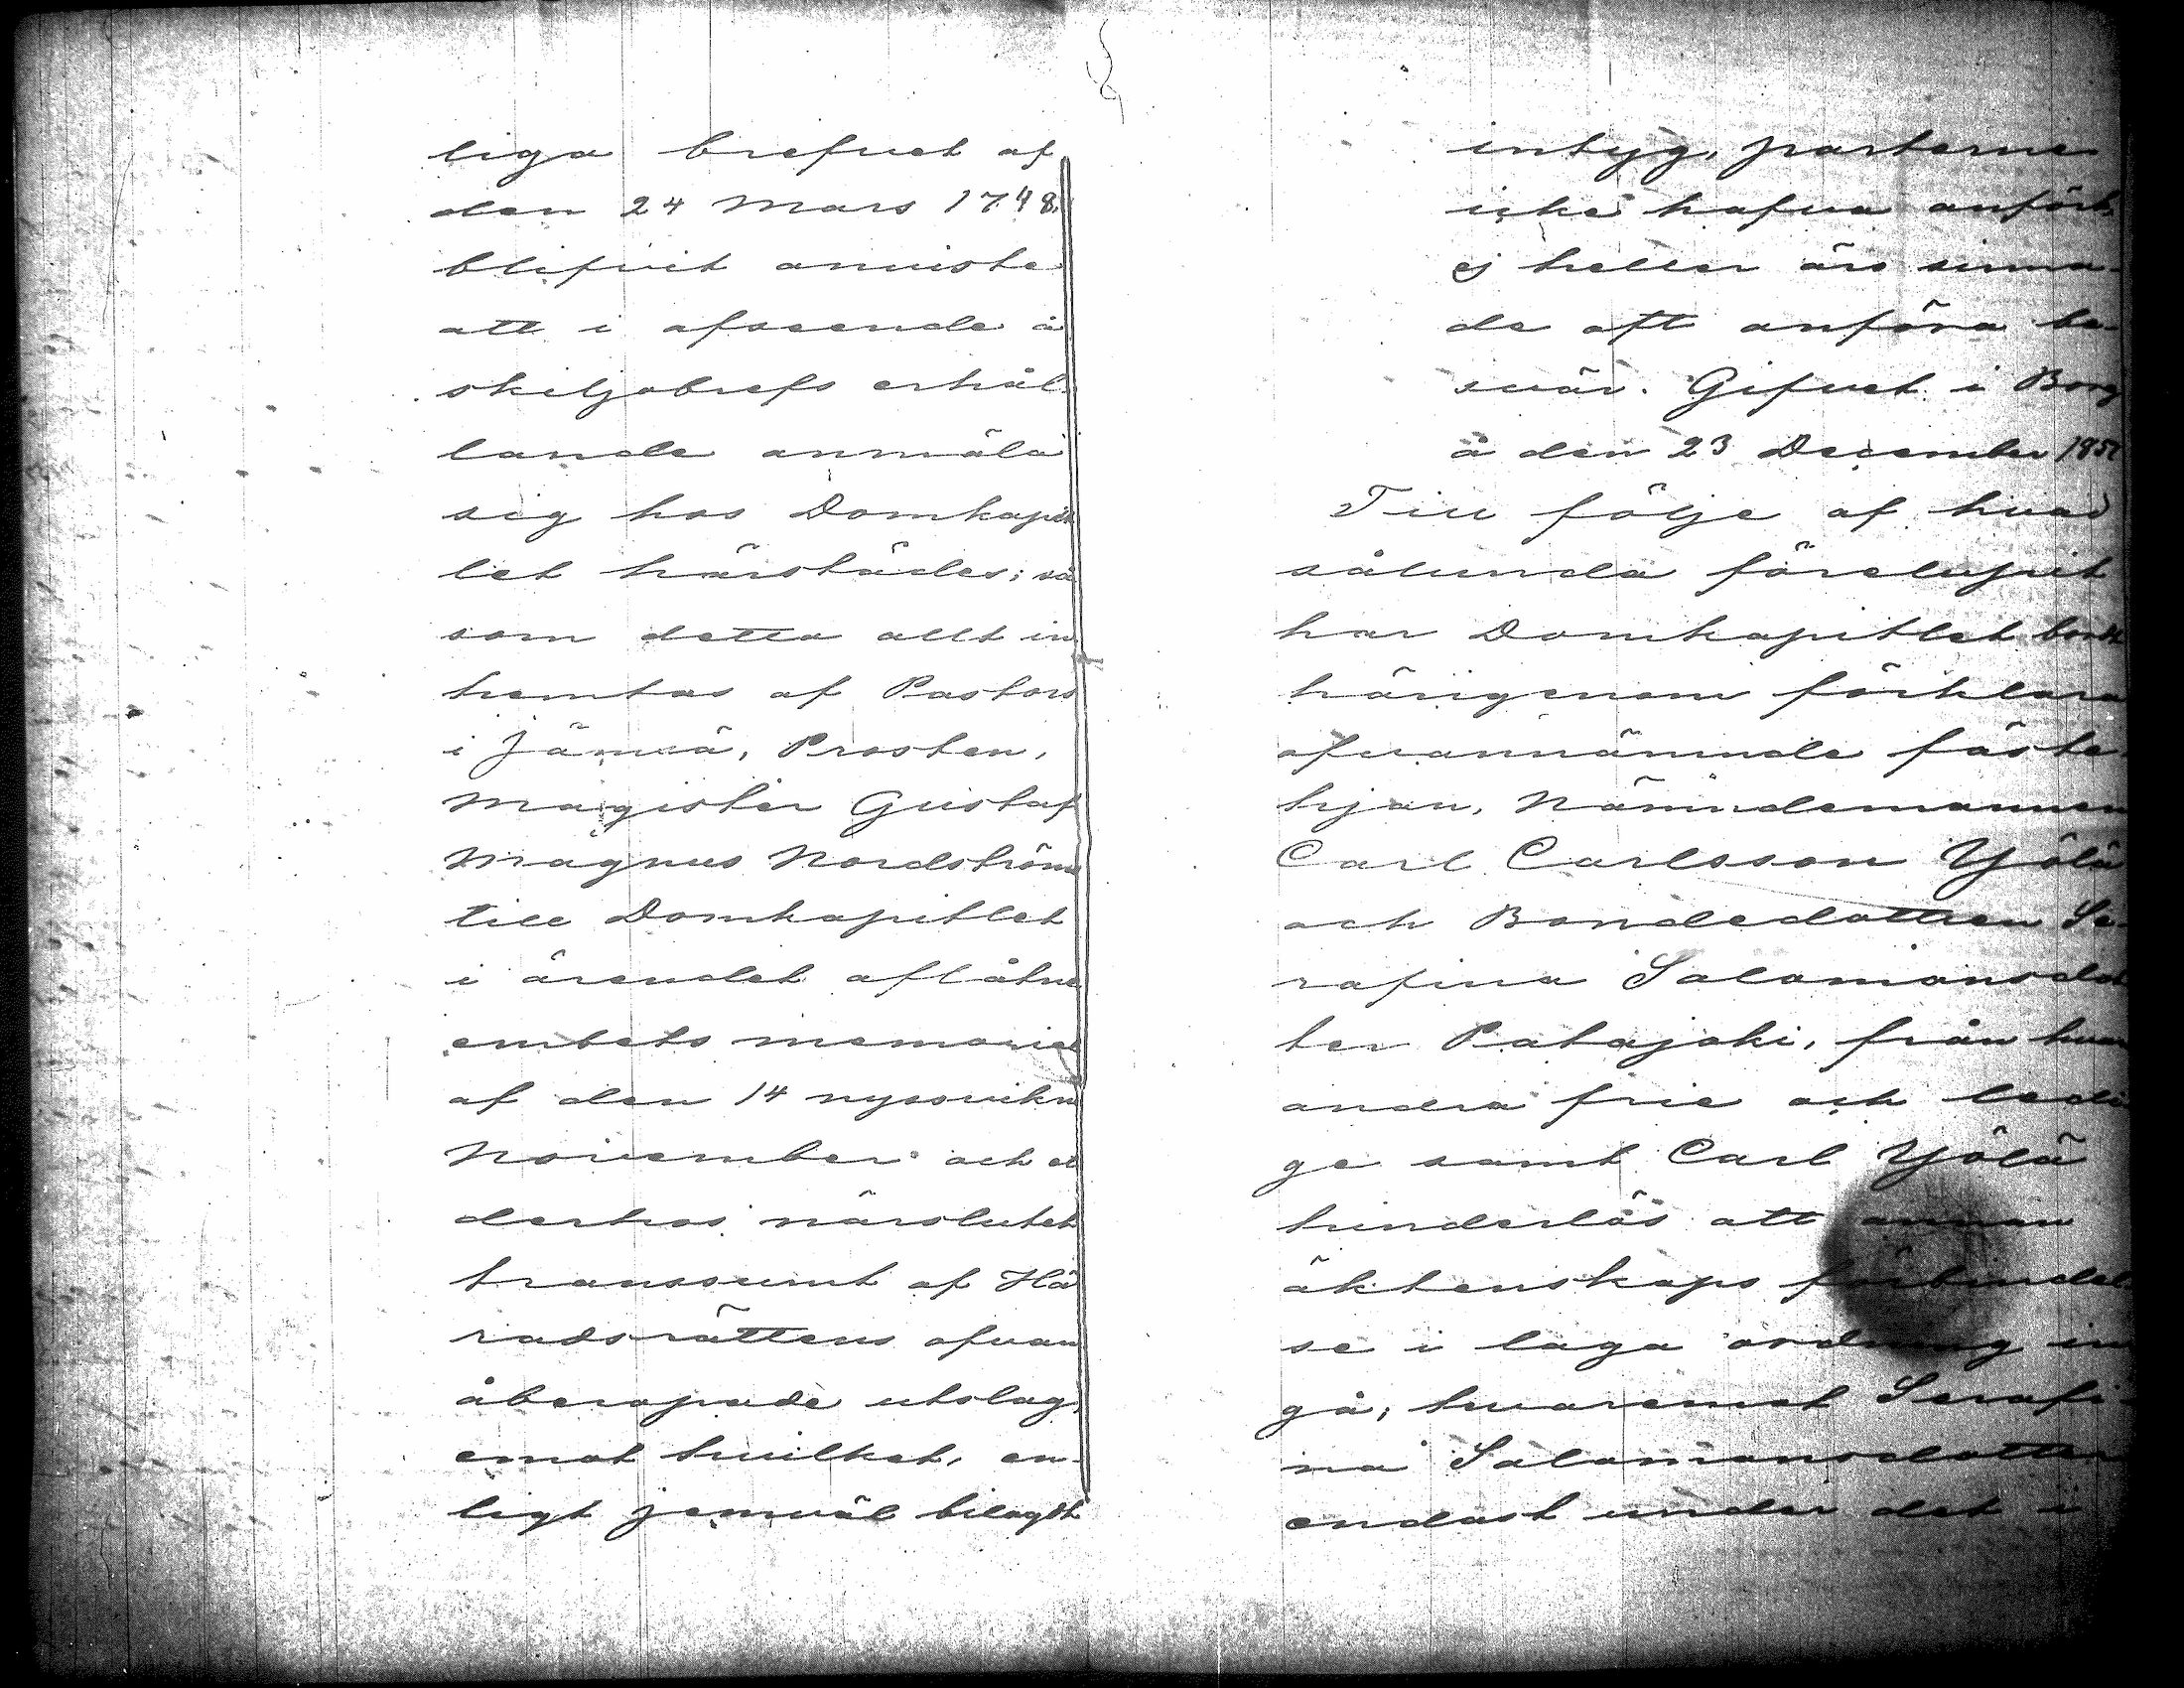 liga brefvet af
den 24 Mars 1748.
blifvit anviste
att i afseende å
skiljobrefs erhål-
lande anmäla
sig hos Domkapit
let härstädes; så
som detta allt in
hemtas af Pastors
i Jämsä, Prosten,
Magister Gustaf
Magnus Nordström
till Domkapitlet
i ärendet aflåtne
embets memorial
af den 14 nyssvikne
November och et
derhos närslutet
transsumt af Hä
radsrättens ofvan
åberopade utslag,
emot hvilket, en-
ligt jemväl bilagdt
intyg, parterne
icke hafva anfört,
ej heller äro sinna-
de att anföra be-
svär. Gifvet i Borg
å den 23 December
Till följe af hvad
sålunda förelupit
har Domkapitlet bordt
härigenom förklara
ofvannämnde fäste-
hjon, Nämndemannen
Carl Carlsson Yölä
och Bondedottren Se-
rafina Salomonsdot
ter Patajoki, från hvar
andra frie och ledi
ge samt Carl Yölä
hinderlös att annan
äktenskaps förbindel
se i laga ordning in
gå; hvaremot Serafi-
na Salomonsdotter
endast under det i